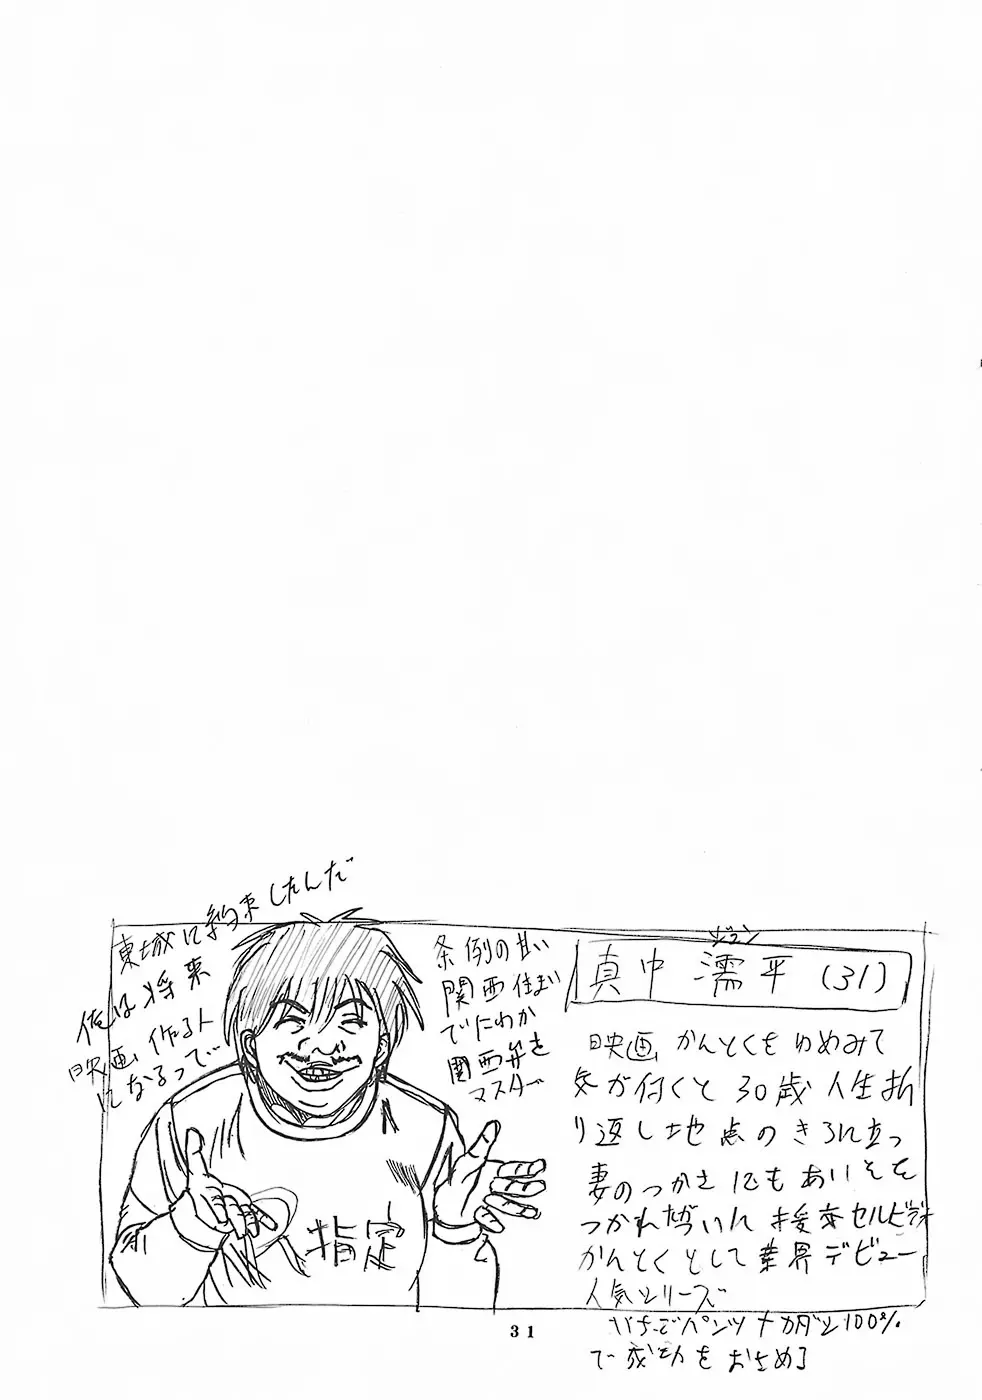 東城に約束したんだ
俺は将来
映画作る人
になるって
条例の甘い
関西住まい
でにわか
関西弁を
マスター
ジュン
真中 濡平 (31)
映画かんとくをゆめみて
気が付くと30歳 人生折
り返し地点のきろに立つ
妻のつかさにもあいそを
つかれ 援交セルビデオ
かんとくとして業界デビュー
人気シリーズ
いちごパンツ 100%
で成功をおさめる
指定
31